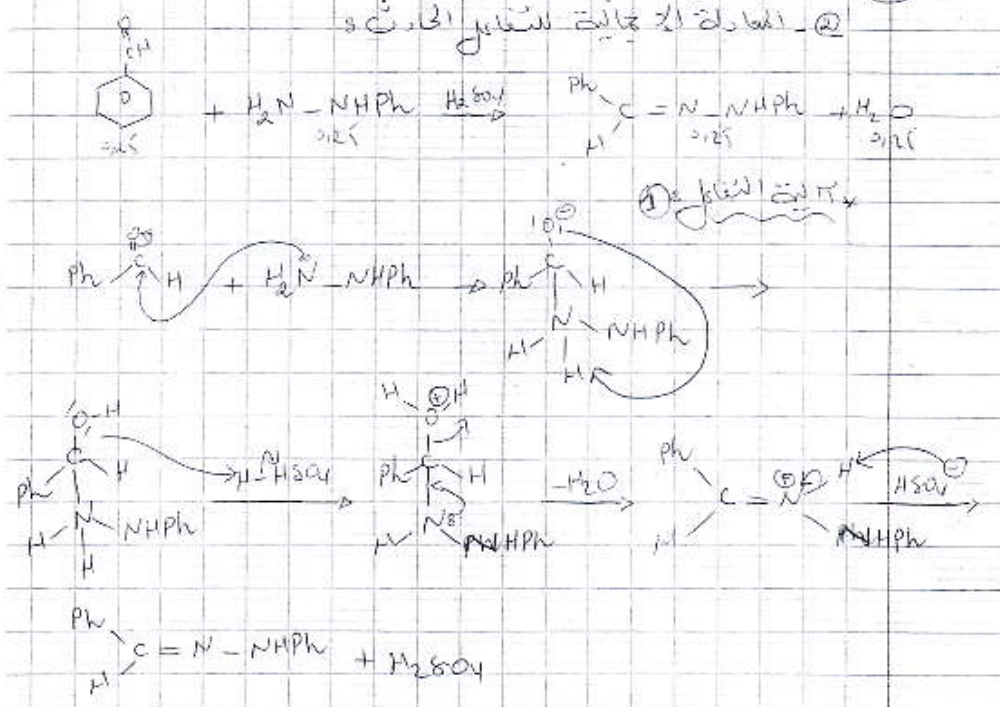 ② - المعادلة الإجمالية للتفاعل الحادث :
O
CH
+ H₂N - NHPh H₂SO₄ → Ph H C = N - NHPh + H₂O
0,25 0,25 0,25 0,25
* آلية التفاعل : ①
Ph C H O + H₂N - NHPh → Ph C H O⊖ N H H NHPh →
O - H C H Ph N H H NHPh H - HSO₄ → H O⊕ H Ph C H N H NHPh -H₂O → Ph H C = N⊕ H NHPh HSO₄⊖ →
Ph H C = N - NHPh + H₂SO₄